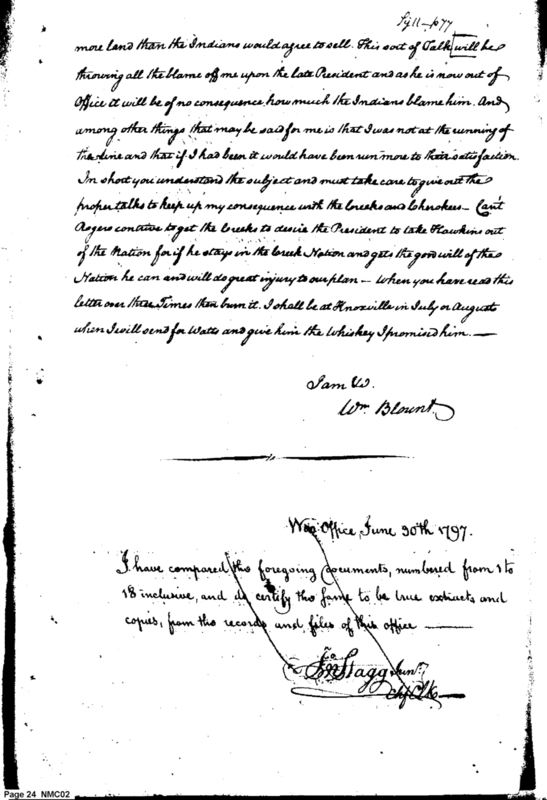 more land than the Indians would agree to sell. This sort of Talk will be
throwing all the blame off me upon the late President and as he is now out of
Office it will be of no consequence how much the Indians blame him. And
among other things that may be said for me is that I was not at the running of
the Line and that if I had been it would have been run more to their satisfaction.
In short you understand the subject and must take care to give out the
proper talks to keep up my consequence with the Creeks and Cherokees – Can't
Rogers contrive to get the Creeks to desire the President to take Hawkins out
of the Nation for if he stays in the Creek Nation and gets the good will of the
Nation he can and will do great injury to our plan – When you have read this
letter over three Times then burn it. I shall be at Knoxville in July or August
when I will send for Watts and give him the Whiskey I promised him. —
I am &c.
Wm Blount.
War Office, June 30th 1797.
I have compared the foregoing documents, numbered from 1 to
18 inclusive, and do certify the same to be true extracts and
copies, from the records and files of this office —
Jno Stagg Junr.
Chf Clk —
Page 24 NMC02